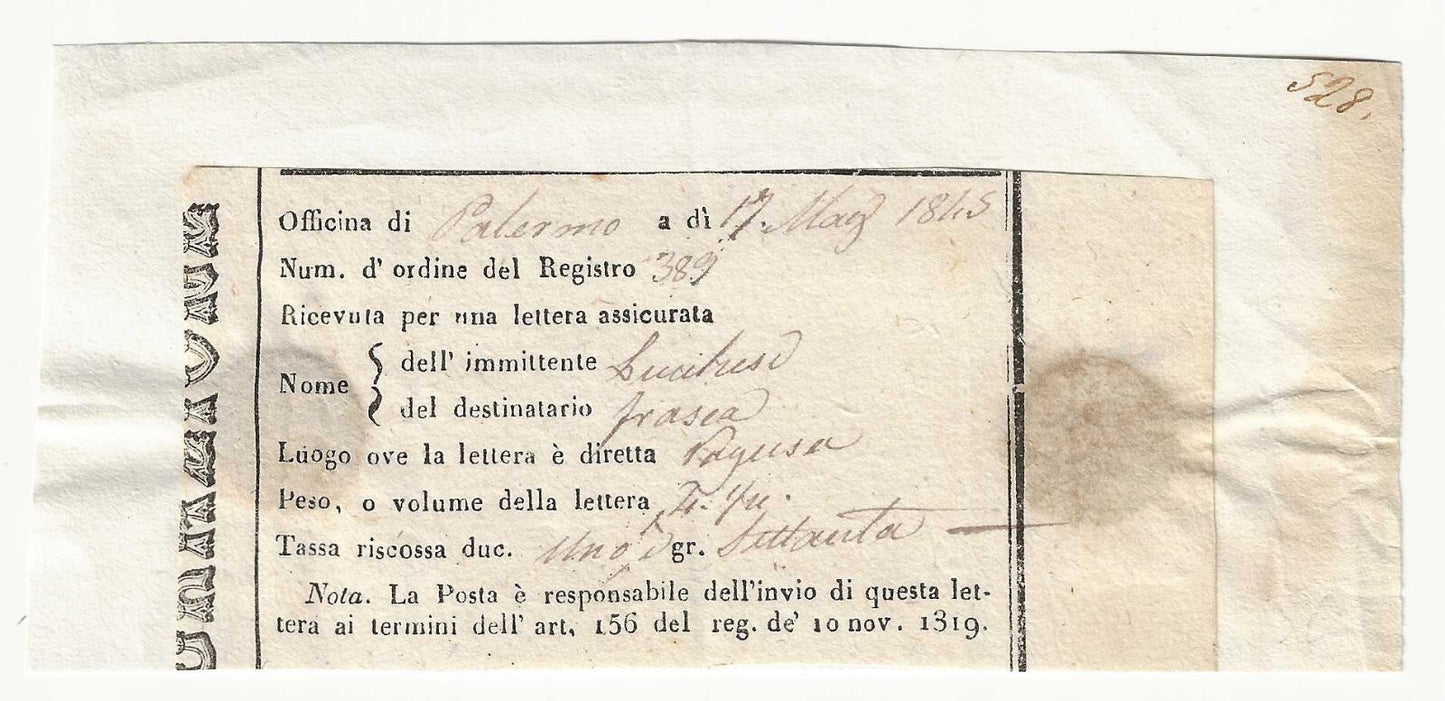 528.
Officina di Palermo a dì 17. Mag 1845
Num. d' ordine del Registro 389
Ricevuta per una lettera assicurata
Nome
dell' immittente
del destinatario Frasca
Luogo ove la lettera è diretta Ragusa
Peso, o volume della lettera
Tassa riscossa duc. Uno e gr. Settanta —
Nota. La Posta è responsabile dell'invio di questa let-
tera ai termini dell' art. 156 del reg. de' 10 nov. 1819.